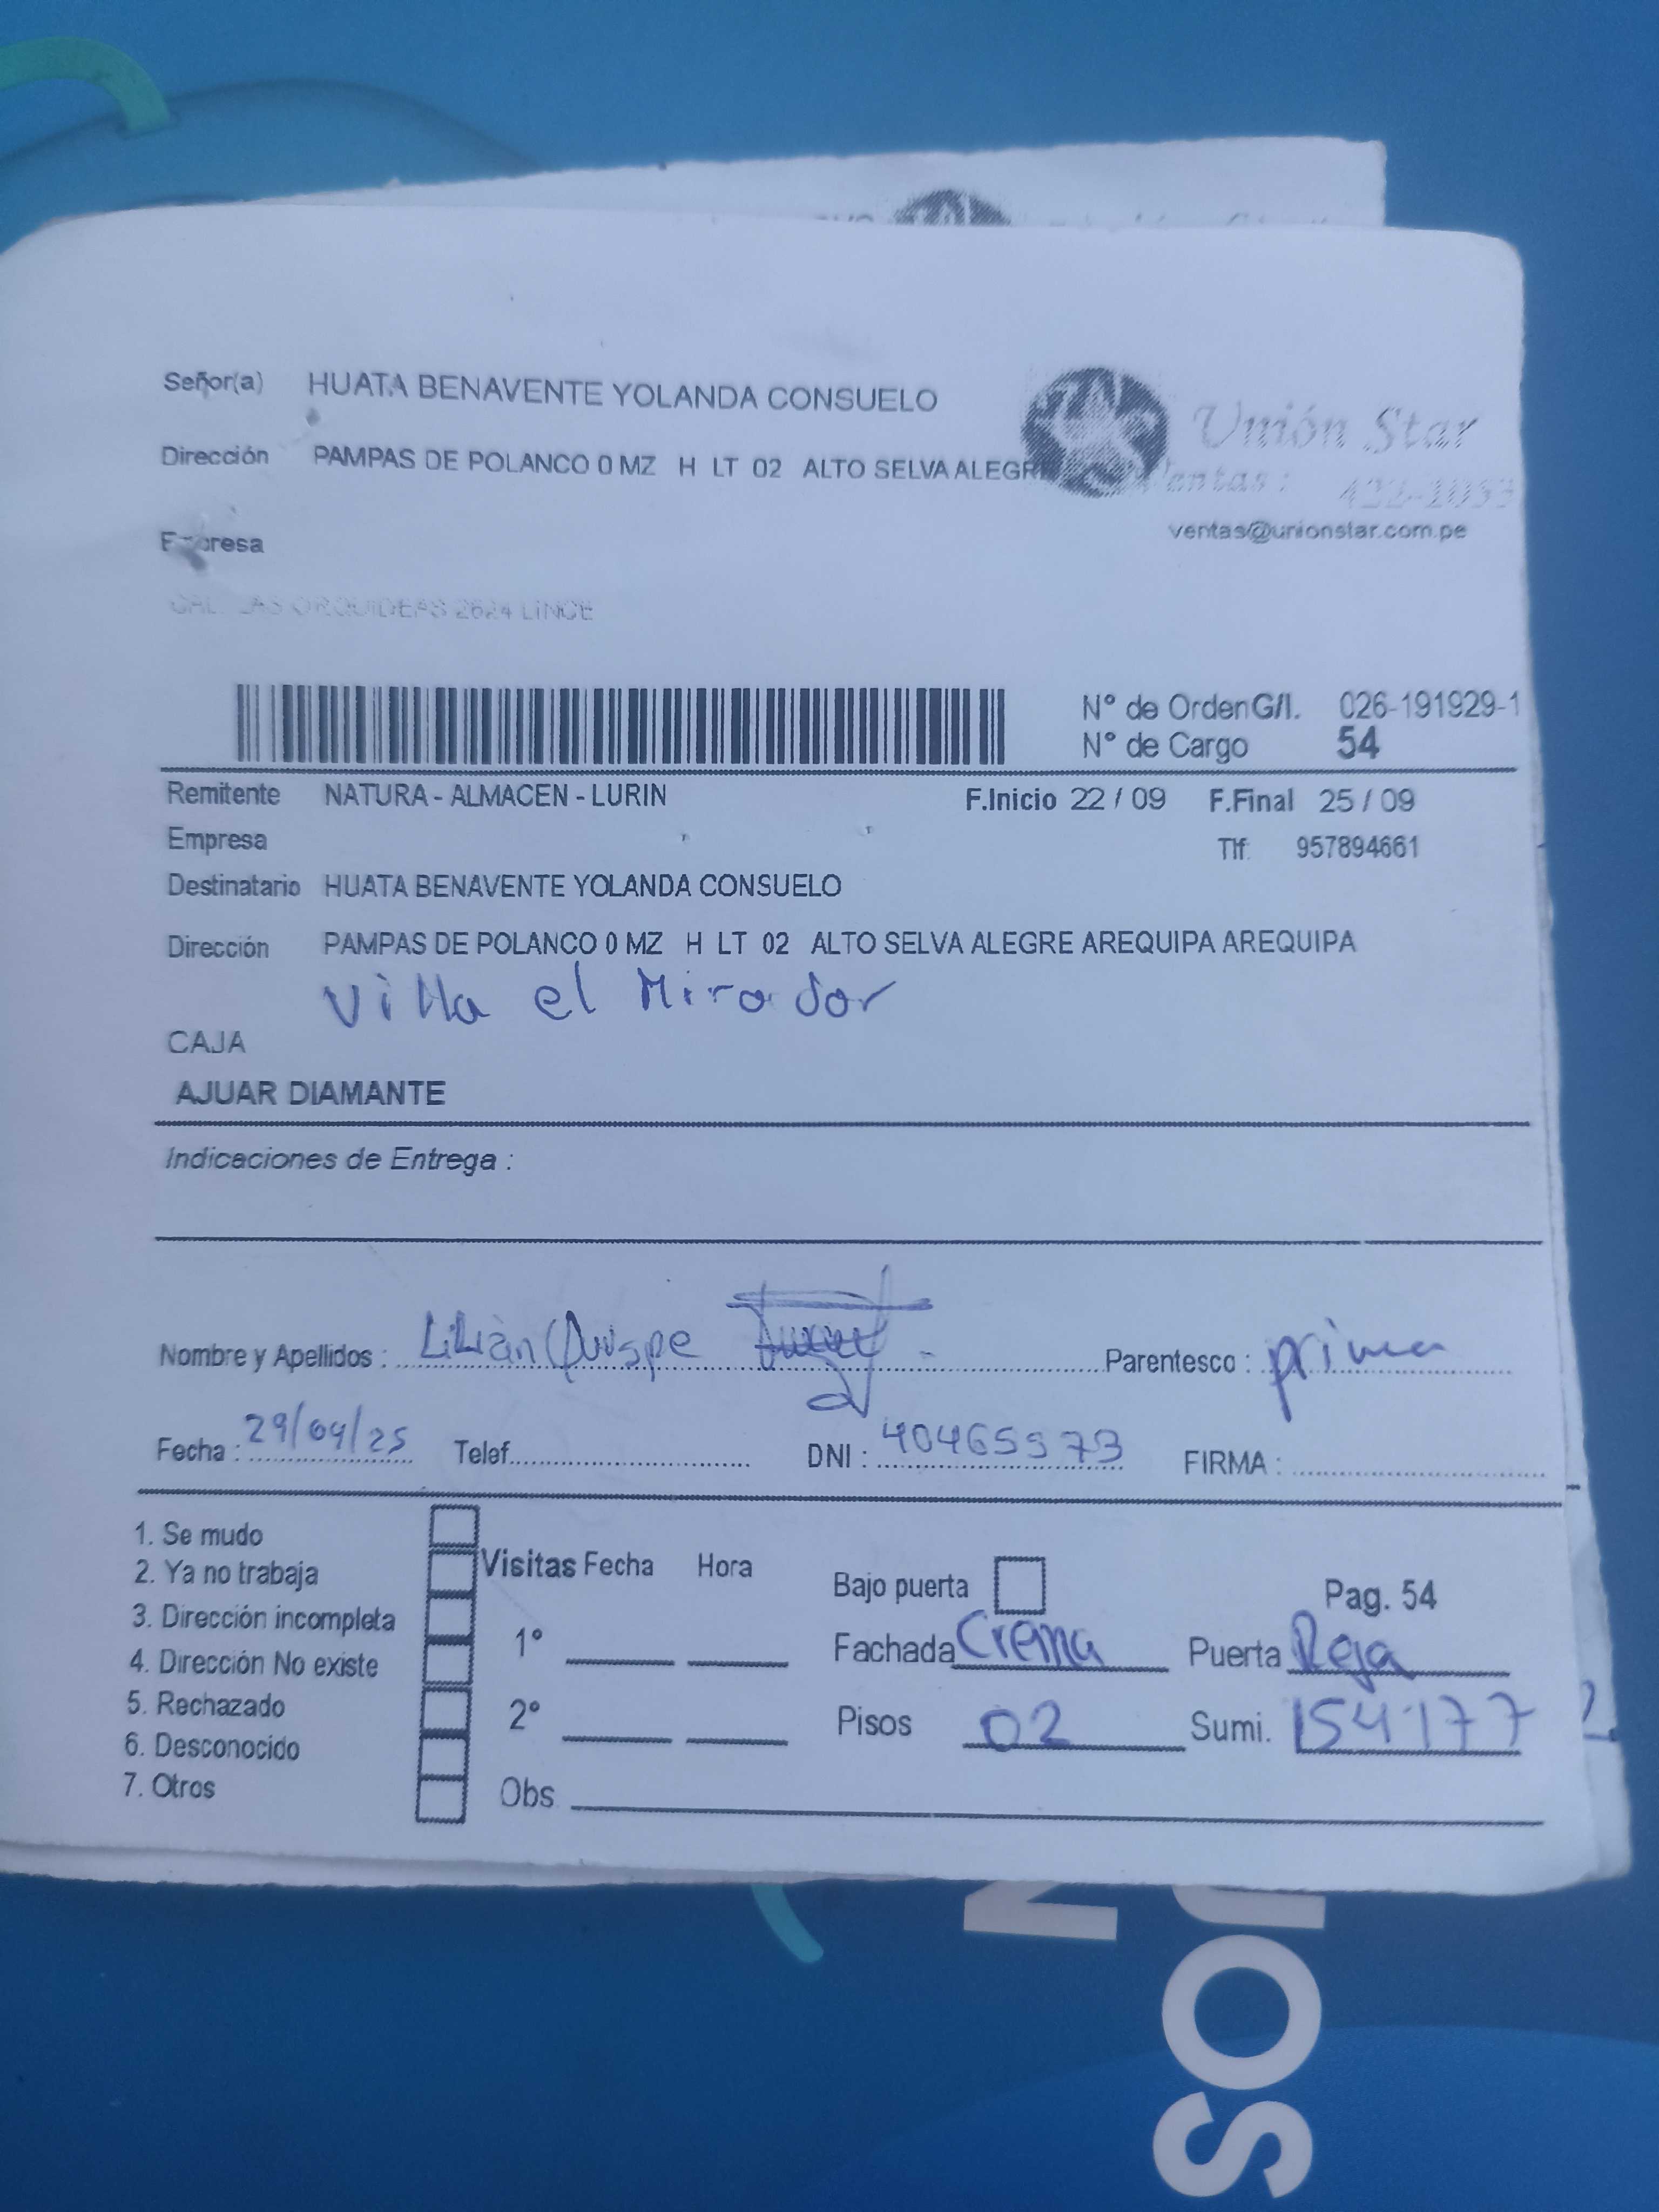 Señor(a) HUATA BENAVENTE YOLANDA CONSUELO
Unión Star
Dirección PAMPAS DE POLANCO 0 MZ H LT 02 ALTO SELVA ALEGRE
Ventas : 422-103
ventas@unionstar.com.pe
LAS ORQUIDEAS 2624 LINCE
N° de Orden G/I. 026-191929-1
N° de Cargo 54
Remitente NATURA - ALMACEN - LURIN F.Inicio 22 / 09 F.Final 25 / 09
Empresa Tlf: 957894661
Destinatario HUATA BENAVENTE YOLANDA CONSUELO
Dirección PAMPAS DE POLANCO 0 MZ H LT 02 ALTO SELVA ALEGRE AREQUIPA AREQUIPA
Villa el Mirador
CAJA
AJUAR DIAMANTE
Indicaciones de Entrega :
Nombre y Apellidos : Lilian Quispe Parentesco : prima
Fecha : 29/09/25 Telef. DNI : 40465973 FIRMA :
1. Se mudo
2. Ya no trabaja
3. Dirección incompleta
4. Dirección No existe
5. Rechazado
6. Desconocido
7. Otros
Visitas Fecha Hora
1°
2°
Obs
Bajo puerta Pag. 54
Fachada Crema Puerta Reja
Pisos 02 Sumi. 154177